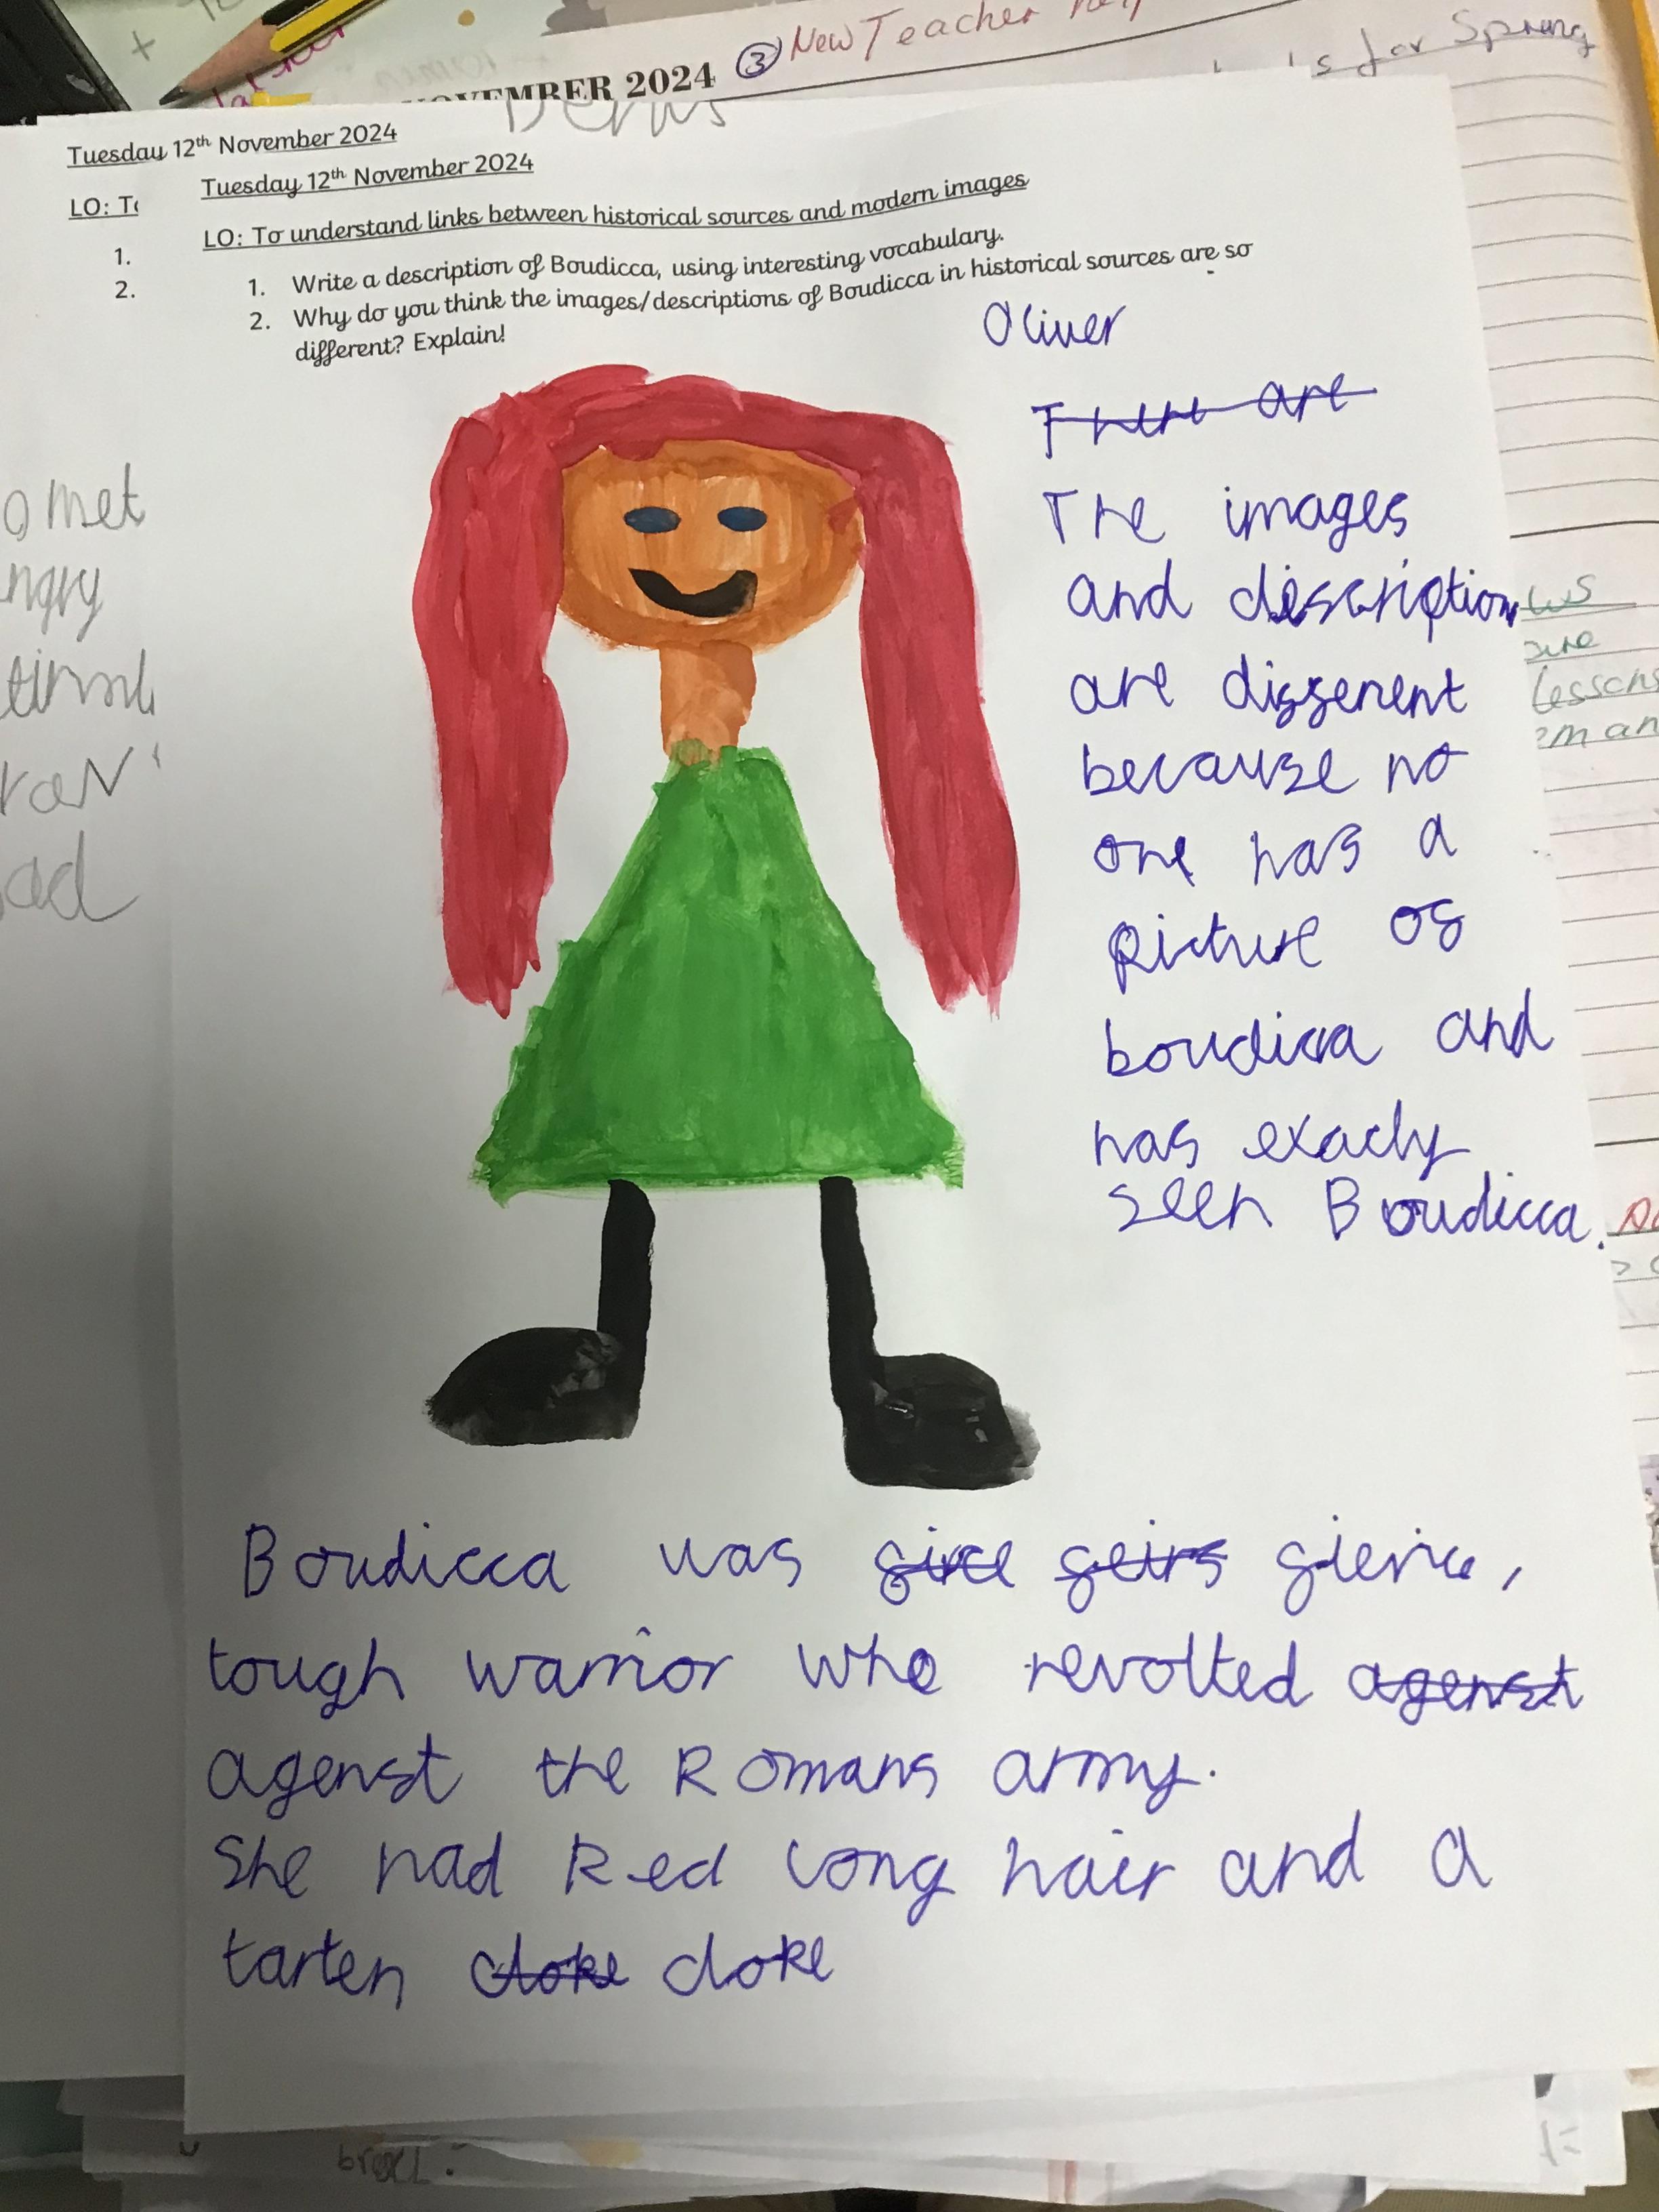 NOVEMBER 2024
③ New Teacher
is for Spring
Tuesday 12th November 2024
LO: To
1.
2.
Tuesday 12th November 2024
LO: To understand links between historical sources and modern images
1. Write a description of Boudicca, using interesting vocabulary.
2. Why do you think the images/descriptions of Boudicca in historical sources are so
different? Explain!
Oliver
There are
The images
and discription
are disserent
because no
one has a
picture os
boudicca and
has exacly
seen Boudicca.
Boudicca was sirce seirs sierice,
tough warrior who revolted agenst
agenst the Romans army.
She had Red long hair and a
tarten cloke cloke
omet
ngry
ad
lessons
eman